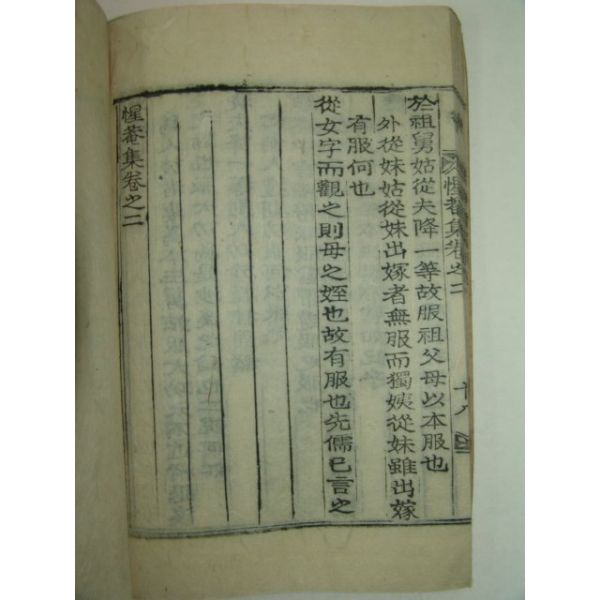 惺菴集卷之二
十八
於祖舅姑從夫降一等故服祖父母以本服也
外從妹姑從妹出嫁者無服而獨姨從妹雖出嫁
有服何也
從女字而觀之則母之姪也故有服也先儒已言之
惺菴集卷之二